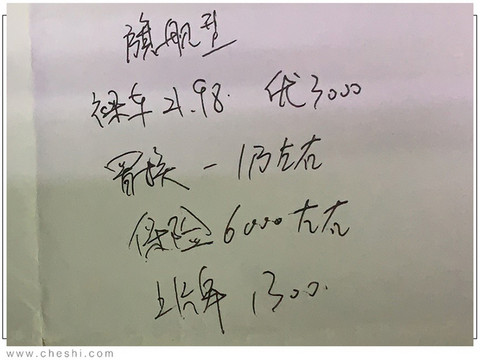 旗舰型
裸车21.98. 优3000
置换-1万左右
保险6000左右
上牌1300.
www.cheshi.com